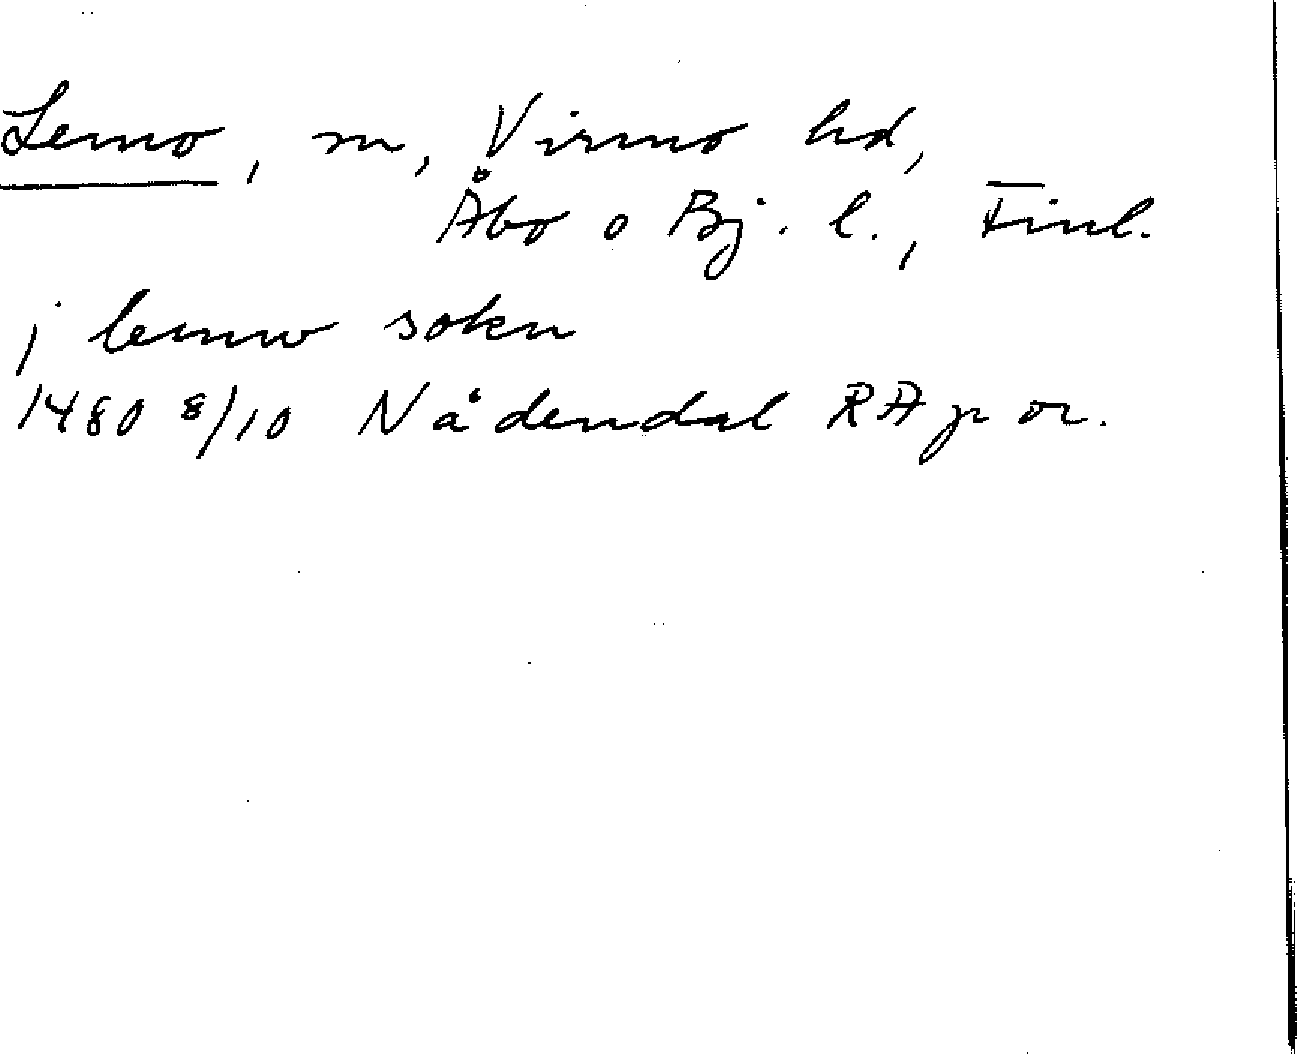 Lemo, sn, Virmo hd,
Åbo o Bj. l., Finl.
j lemw sokn
1480 8/10 Nådendal RAp or.